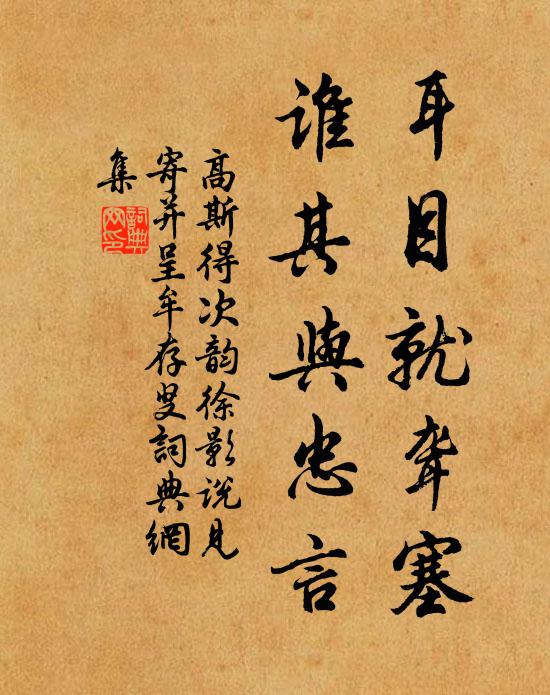 耳目就聋塞
谁其与忠言
高斯得次韵徐影说见
寄并呈牟存叟詞典網
集
詞典网印